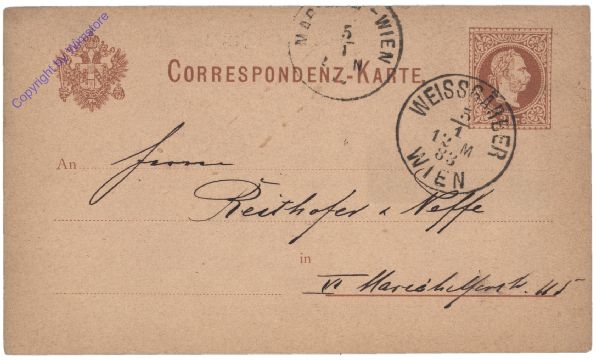 Copyright by Wimstore
CORRESPONDENZ-KARTE.
MAR -WIEN
5
1
N
WEISSGÄRBER
5
1
12 M
83
WIEN
An Herrn
Reithofer & Neffe
in
VI Mariahilferstr. 115